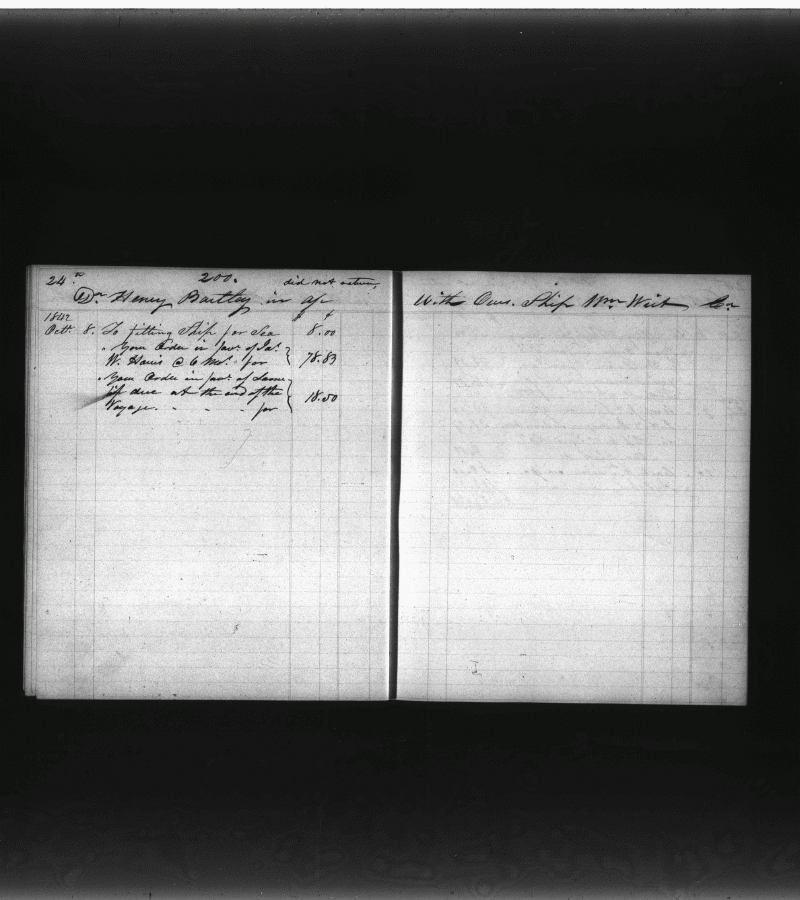 24. 200. did not return
Dr Henry Bartley in a/c
1842 $ ¢
Octr 8. To fitting Ship for Sea 8.00
" Your Order in favr of Jas
W. Harris @ 6 Mos. for 78.83
" Your Order in favr of Same
if due at the end of the 18.50
Voyage. " " " for
With Ows. Ship Wm Wirt Cr